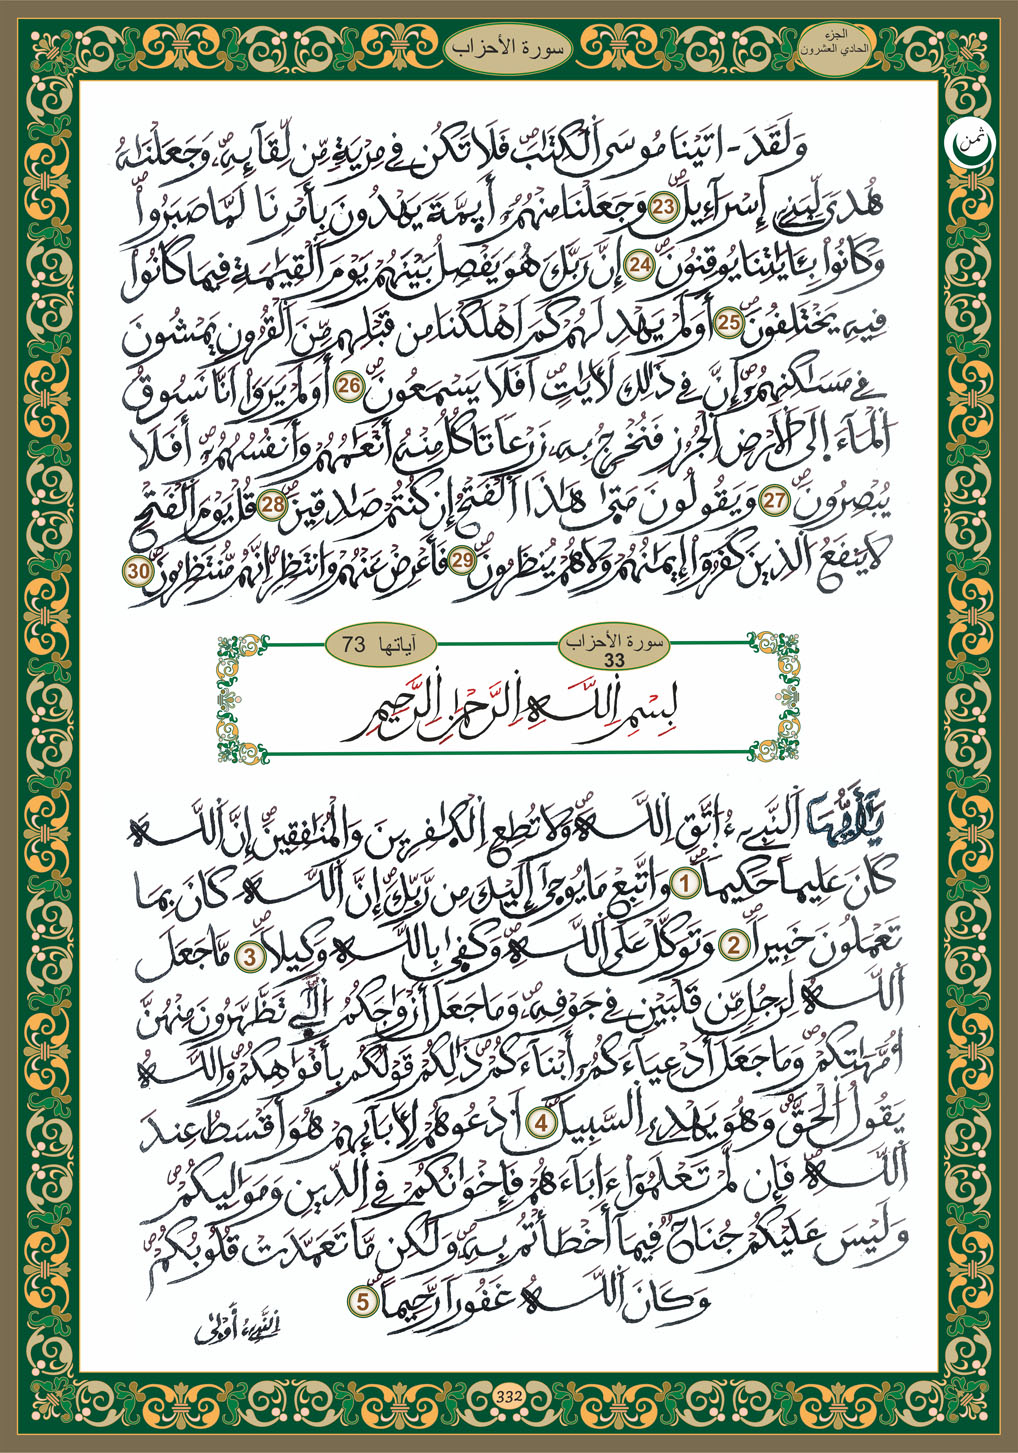 سورة الأحزاب
الجزء
الحادي العشرون
ثمن
وَلَقَدَ اتَيْنَا مُوسَى اَ۬لْكِتَٰبَ فَلَا تَكُن فِے مِرْيَةٖ مِّن لِّقَآئِهِۦ وَجَعَلْنَٰهُ
هُديٗ لِّبَنِےٓ إِسْرَآءِيلَ 23 وَجَعَلْنَا مِنْهُمُۥٓ أَيِمَّةٗ يَهْدُونَ بِأَمْرِنَا لَمَّا صَبَرُواْ
وَكَانُواْ بِـَٔايَٰتِنَا يُوقِنُونَ 24 إِنَّ رَبَّكَ هُوَ يَفْصِلُ بَيْنَهُمْ يَوْمَ اَ۬لْقِيَٰمَةِ فِيمَا كَانُواْ
فِيهِ يَخْتَلِفُونَ 25 أَوَلَمْ يَهْدِ لَهُمْ كَمَ اَهْلَكْنَا مِن قَبْلِهِم مِّنَ اَ۬لْقُرُونِ يَمْشُونَ
فِے مَسَٰكِنِهِمُۥٓ إِنَّ فِے ذَٰلِكَ لَأٓيَٰتٍ اَفَلَا يَسْمَعُونَ 26 أَوَلَمْ يَرَوَاْ اَنَّا نَسُوقُ
اُ۬لْمَآءَ اِ۪لَي اَ۬لَارْضِ اِ۬لْجُرُزِ فَنُخْرِجُ بِهِۦ زَرْعاٗ تَاكُلُ مِنْهُ أَنْعَٰمُهُمْ وَأَنفُسُهُمُۥٓ أَفَلَا
يُبْصِرُونَ 27 وَيَقُولُونَ مَتَيٰ هَٰذَا اَ۬لْفَتْحُ إِن كُنتُمْ صَٰدِقِينَ 28 قُلْ يَوْمَ اَ۬لْفَتْحِ
لَا يَنفَعُ اُ۬لذِينَ كَفَرُوٓاْ إِيمَٰنُهُمْ وَلَا هُمْ يُنظَرُونَ 29 فَأَعْرِضْ عَنْهُمْ وَانتَظِرِ اِنَّهُم مُّنتَظِرُونَ 30
سورة الأحزاب
33
آياتها 73
بِسْمِ اِ۬للَّهِ اِ۬لرَّحْمَٰنِ اِ۬لرَّحِيمِ
يَٰٓأَيُّهَا اَ۬لنَّبِےٓءُ اتَّقِ اِ۬للَّهَ وَلَا تُطِعِ اِ۬لْكَٰفِرِينَ وَالْمُنَٰفِقِينَ إِنَّ اَ۬للَّهَ
كَانَ عَلِيماً حَكِيماٗ 1 وَاتَّبِعْ مَا يُوحَيٰٓ إِلَيْكَ مِن رَّبِّكَ إِنَّ اَ۬للَّهَ كَانَ بِمَا
تَعْمَلُونَ خَبِيراٗ 2 وَتَوَكَّلْ عَلَي اَ۬للَّهِ وَكَفَيٰ بِاللَّهِ وَكِيلاٗ 3 مَّا جَعَلَ
اَ۬للَّهُ لِرَجُلٖ مِّن قَلْبَيْنِ فِے جَوْفِهِۦ وَمَا جَعَلَ أَزْوَٰجَكُمُ اُ۬لَّٰٓـِۧے تَظَّهَّرُونَ مِنْهُنَّ
أُمَّهَٰتِكُمْ وَمَا جَعَلَ أَدْعِيَآءَكُمُۥٓ أَبْنَآءَكُمْ ذَٰلِكُمْ قَوْلُكُم بِأَفْوَٰهِكُمْ وَاللَّهُ
يَقُولُ اُ۬لْحَقَّ وَهُوَ يَهْدِے اِ۬لسَّبِيلَ 4 اَ۟دْعُوهُمْ لِأٓبَآئِهِمْ هُوَ أَقْسَطُ عِندَ
اَ۬للَّهِ فَإِن لَّمْ تَعْلَمُوٓاْ ءَابَآءَهُمْ فَإِخْوَٰنُكُمْ فِے اِ۬لدِّينِ وَمَوَٰلِيكُمْ
وَلَيْسَ عَلَيْكُمْ جُنَاحٞ فِيمَآ أَخْطَأْتُم بِهِۦ وَلَٰكِن مَّا تَعَمَّدَتْ قُلُوبُكُمْ
وَكَانَ اَ۬للَّهُ غَفُوراٗ رَّحِيماً 5
اَ۬لنَّبِےٓءُ أَوْلَيٰ
332